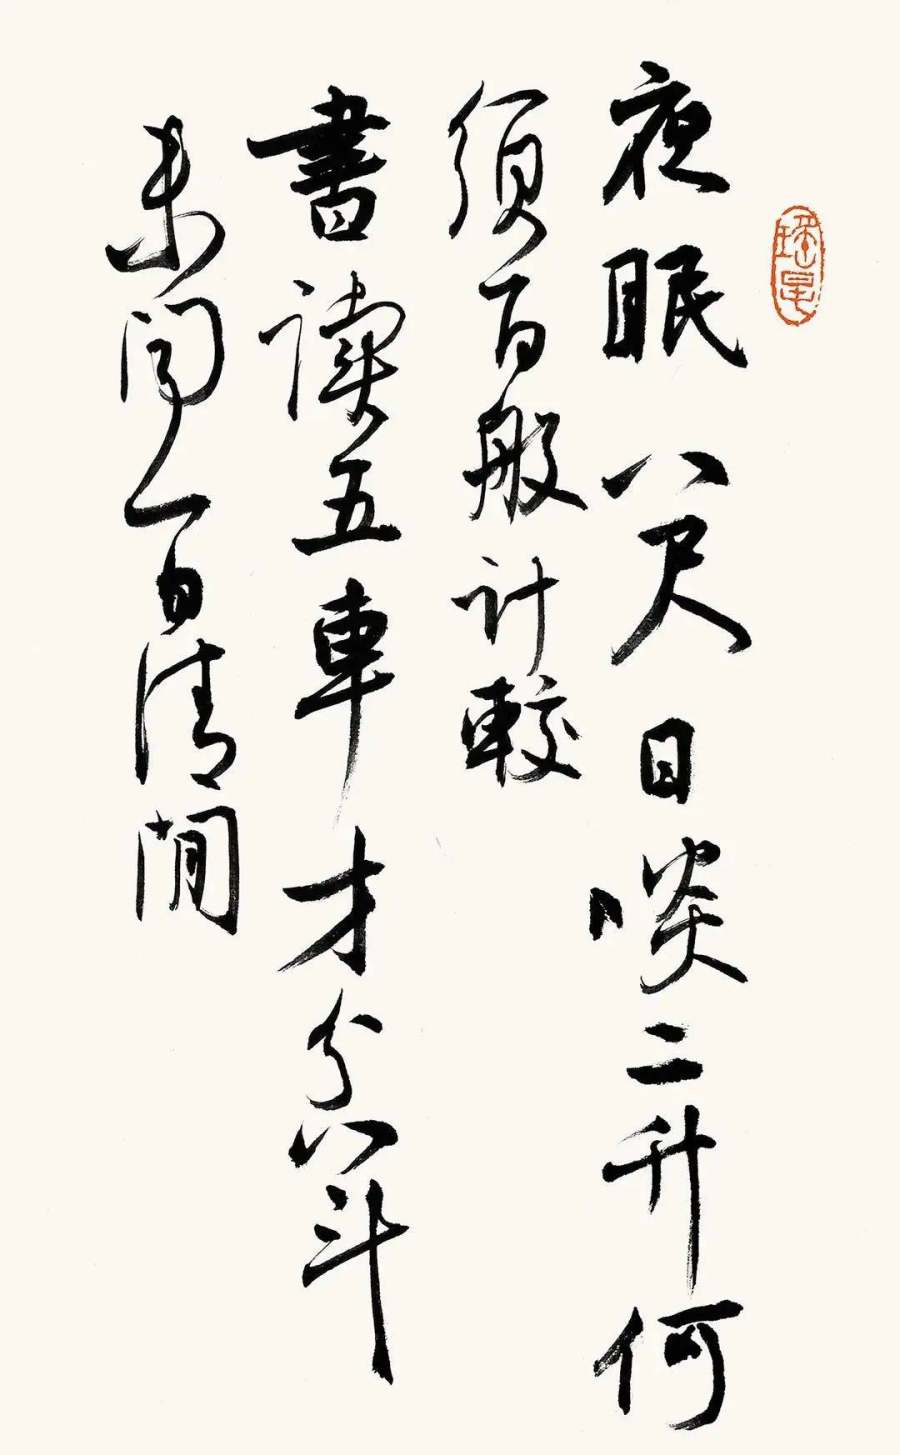 夜眠八尺日啖二升何
須百般计較
書读五車才分八斗
未闻一日清閒